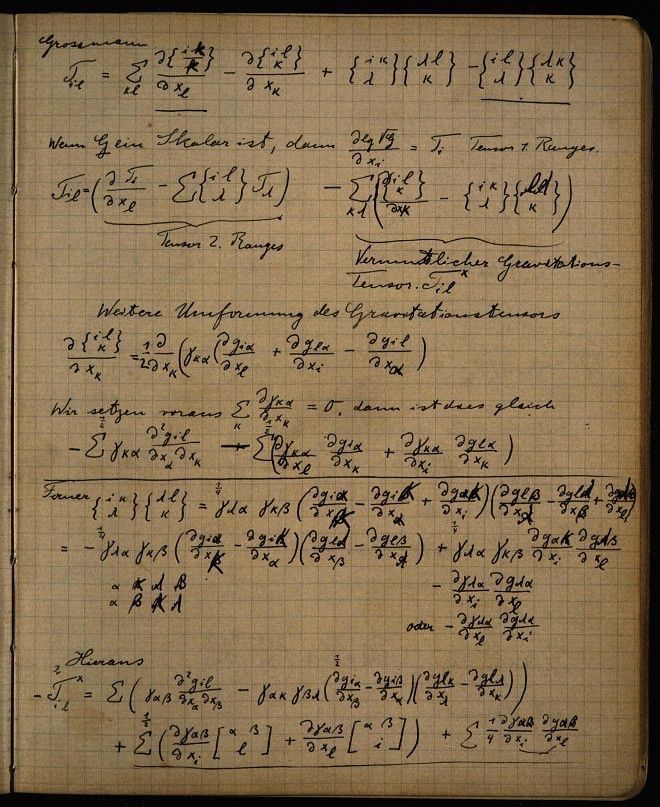 Grossmann
T_il = Σ_κl ∂{i κ / κ}/∂x_l − ∂{i l / κ}/∂x_κ + {i κ / λ}{λ l / κ} − {i l / λ}{λ κ / κ}
Wenn G ein Skalar ist, dann ∂lg√G/∂x_i = T_i Tensor 1. Ranges.
T_il = (∂T_i/∂x_l − Σ{i l / λ} T_λ) − Σ_κλ (∂{i l / κ}/∂x_κ − {i κ / λ}{λ l / κ})
Tensor 2. Ranges
Vermutlicher Gravitations-
Tensor. T_il^x
Weitere Umformung des Gravitationstensors
∂{i l / κ}/∂x_κ = 1/2 ∂/∂x_κ (γ_κα (∂g_iα/∂x_l + ∂g_lα/∂x_i − ∂g_il/∂x_α)
Wir setzen voraus Σ_κ ∂γ_κα/∂x_κ = 0, dann ist dies gleich
− 1/2 Σ γ_κα ∂²g_il/∂x_α∂x_κ − 1/2 Σ (∂γ_κα/∂x_l ∂g_iα/∂x_κ + ∂γ_κα/∂x_i ∂g_lα/∂x_κ)
Ferner {i κ / λ}{λ l / κ} = 1/4 γ_λα γ_κβ (∂g_iα/∂x_κ − ∂g_iκ/∂x_α + ∂g_ακ/∂x_i)(∂g_lβ/∂x_λ − ∂g_lλ/∂x_β + ∂g_λβ/∂x_l)
= − 1/4 γ_λα γ_κβ (∂g_iα/∂x_κ − ∂g_iκ/∂x_α)(∂g_lλ/∂x_β − ∂g_lβ/∂x_λ) + 1/4 γ_λα γ_κβ ∂g_ακ/∂x_i ∂g_λβ/∂x_l
α κ λ β
α β κ λ
− ∂γ_λα/∂x_i ∂g_λα/∂x_l
oder − ∂γ_λα/∂x_l ∂g_λα/∂x_i
Hieraus
− 2 T_il^x = Σ (γ_αβ ∂²g_il/∂x_α∂x_β − 1/2 γ_ακ γ_βλ (∂g_iα/∂x_β − ∂g_iβ/∂x_α)(∂g_lκ/∂x_λ − ∂g_lλ/∂x_κ))
+ 1/2 Σ (∂γ_αβ/∂x_i [α β / l] + ∂γ_αβ/∂x_l [α β / i]) + Σ 1/4 ∂γ_αβ/∂x_i ∂g_αβ/∂x_l